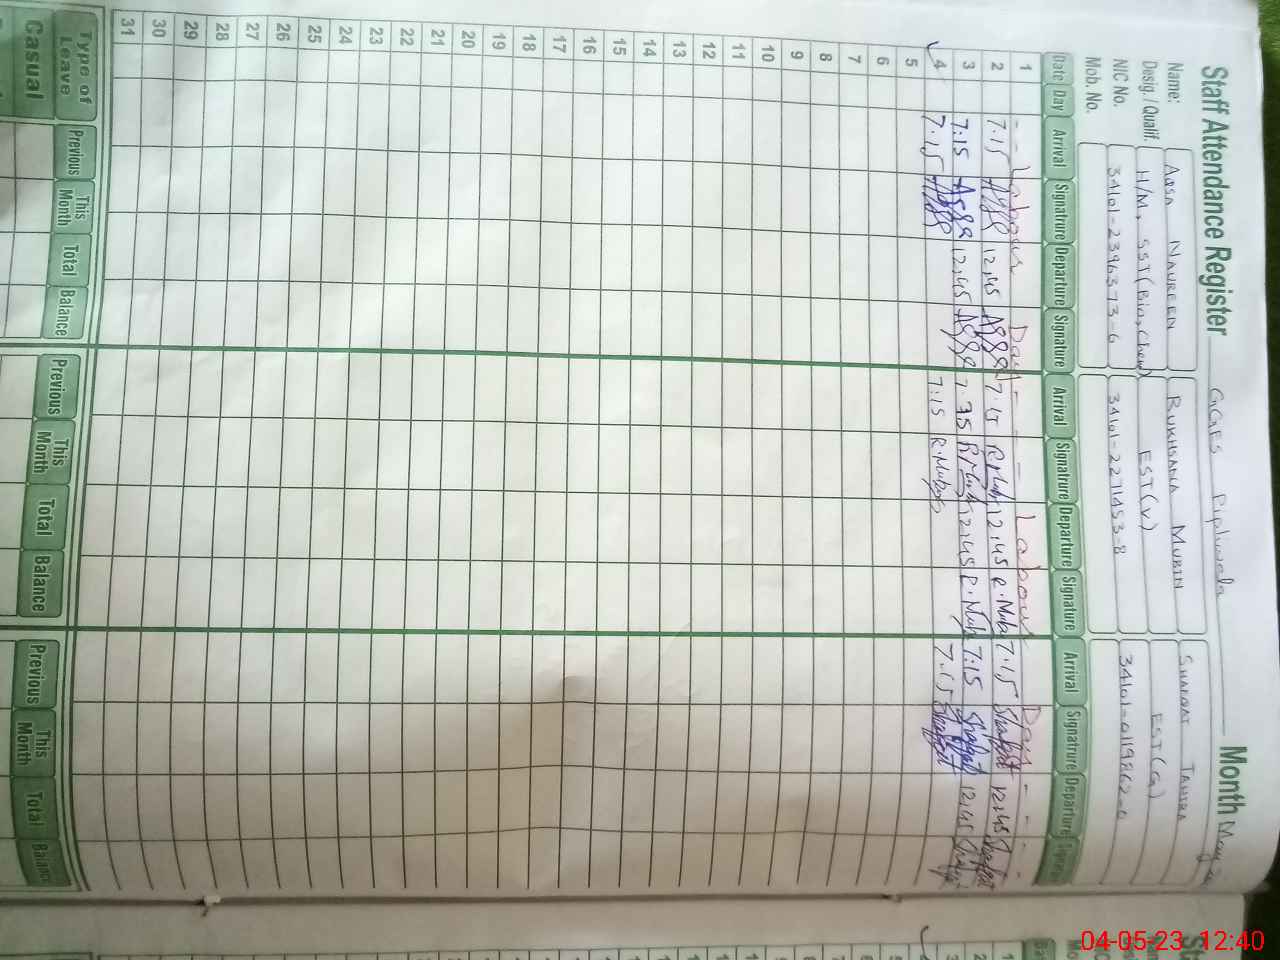 Staff Attendance Register GGES Pipliwala Month May
Name: AQSA NAUREEN RUKHSANA MUBIN SHAFQAT TAHIRA
Desig./Qualif. H/M, SST(Bio,Chem) EST(V) EST(G)
NIC No. 34101-2396373-6 34101-2271453-8 34101-0119862-0
Mob. No.
Date Day Arrival Signatrure Departure Signature Arrival Signatrure Departure Signature Arrival Signatrure Departure Signature
1 - - Labour Day - - - Labour Day - - -
2 7.15 12,45 7.15 12,45 R.Mub 7.15 Shafqat 12,45 Shafqat
3 7:15 12,45 7.15 12,45 R.Mub 7:15 Shafqat 12,45
4 7.15 7:15 7.15 Shafqat
5
6
7
8
9
10
11
12
13
14
15
16
17
18
19
20
21
22
23
24
25
26
27
28
29
30
31
Type of Leave Previous This Month Total Balance Previous This Month Total Balance Previous This Month Total Balance
Casual
04-05-23 12:40